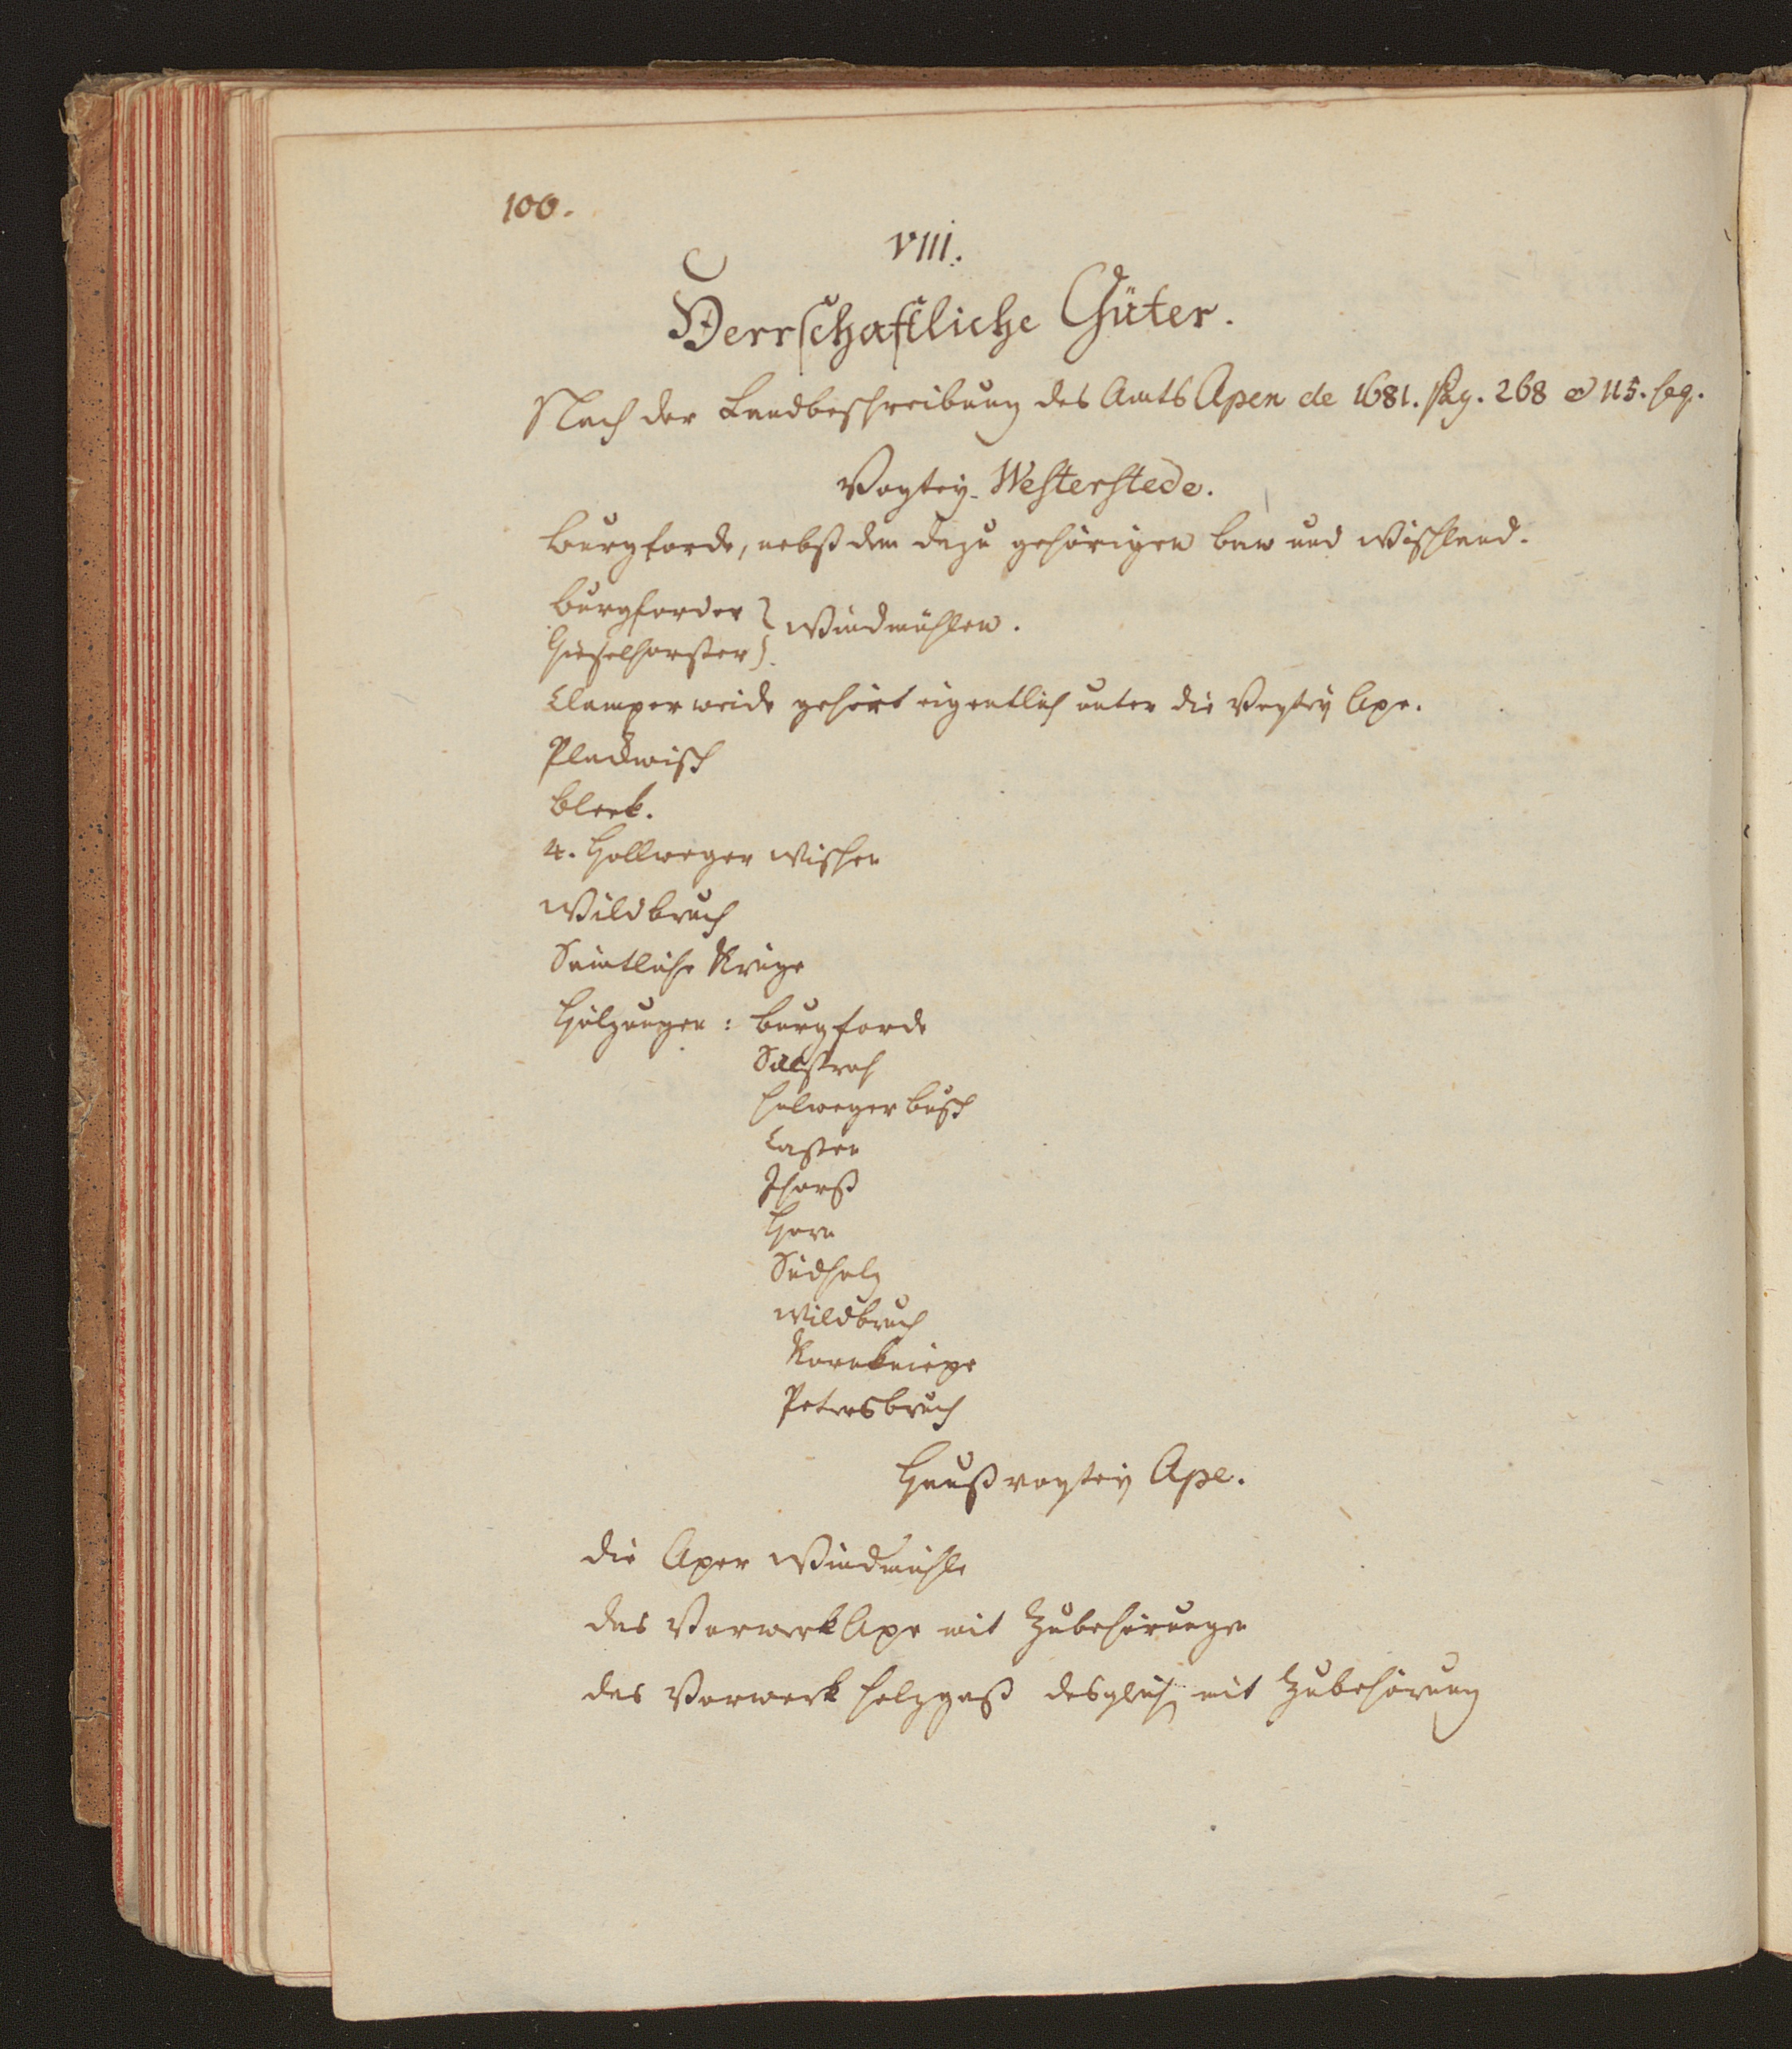 100.
VIII.
Herrschaftliche Güter.
Nach der Landbeschreibung des Amts Apen de 1681. pag. 268 et 115. seq.
Vogtey Westerstede.
Burgforde, nebst dem dazu gehörigen Bau und Wischland.
Burgforder } Windmühlen.
Gieselhorster }
Clamperweide gehört eigentlich unter die Vogtey Ape.
Plackwisch
Bleek.
4. Hollweger Wischen
Wildbruch
Sämtliche Krüge
Hölzungen: Burgforde
Halweger Busch
Ihorst
Horn
Südholz
Wildbruch
Kornkniepe
Petersbruch
Haußvogtey Ape.
die Aper Windmühle
das Vorwerk Ape mit Zubehörungen
das Vorwerk Holzgast desgleich mit Zubehörung